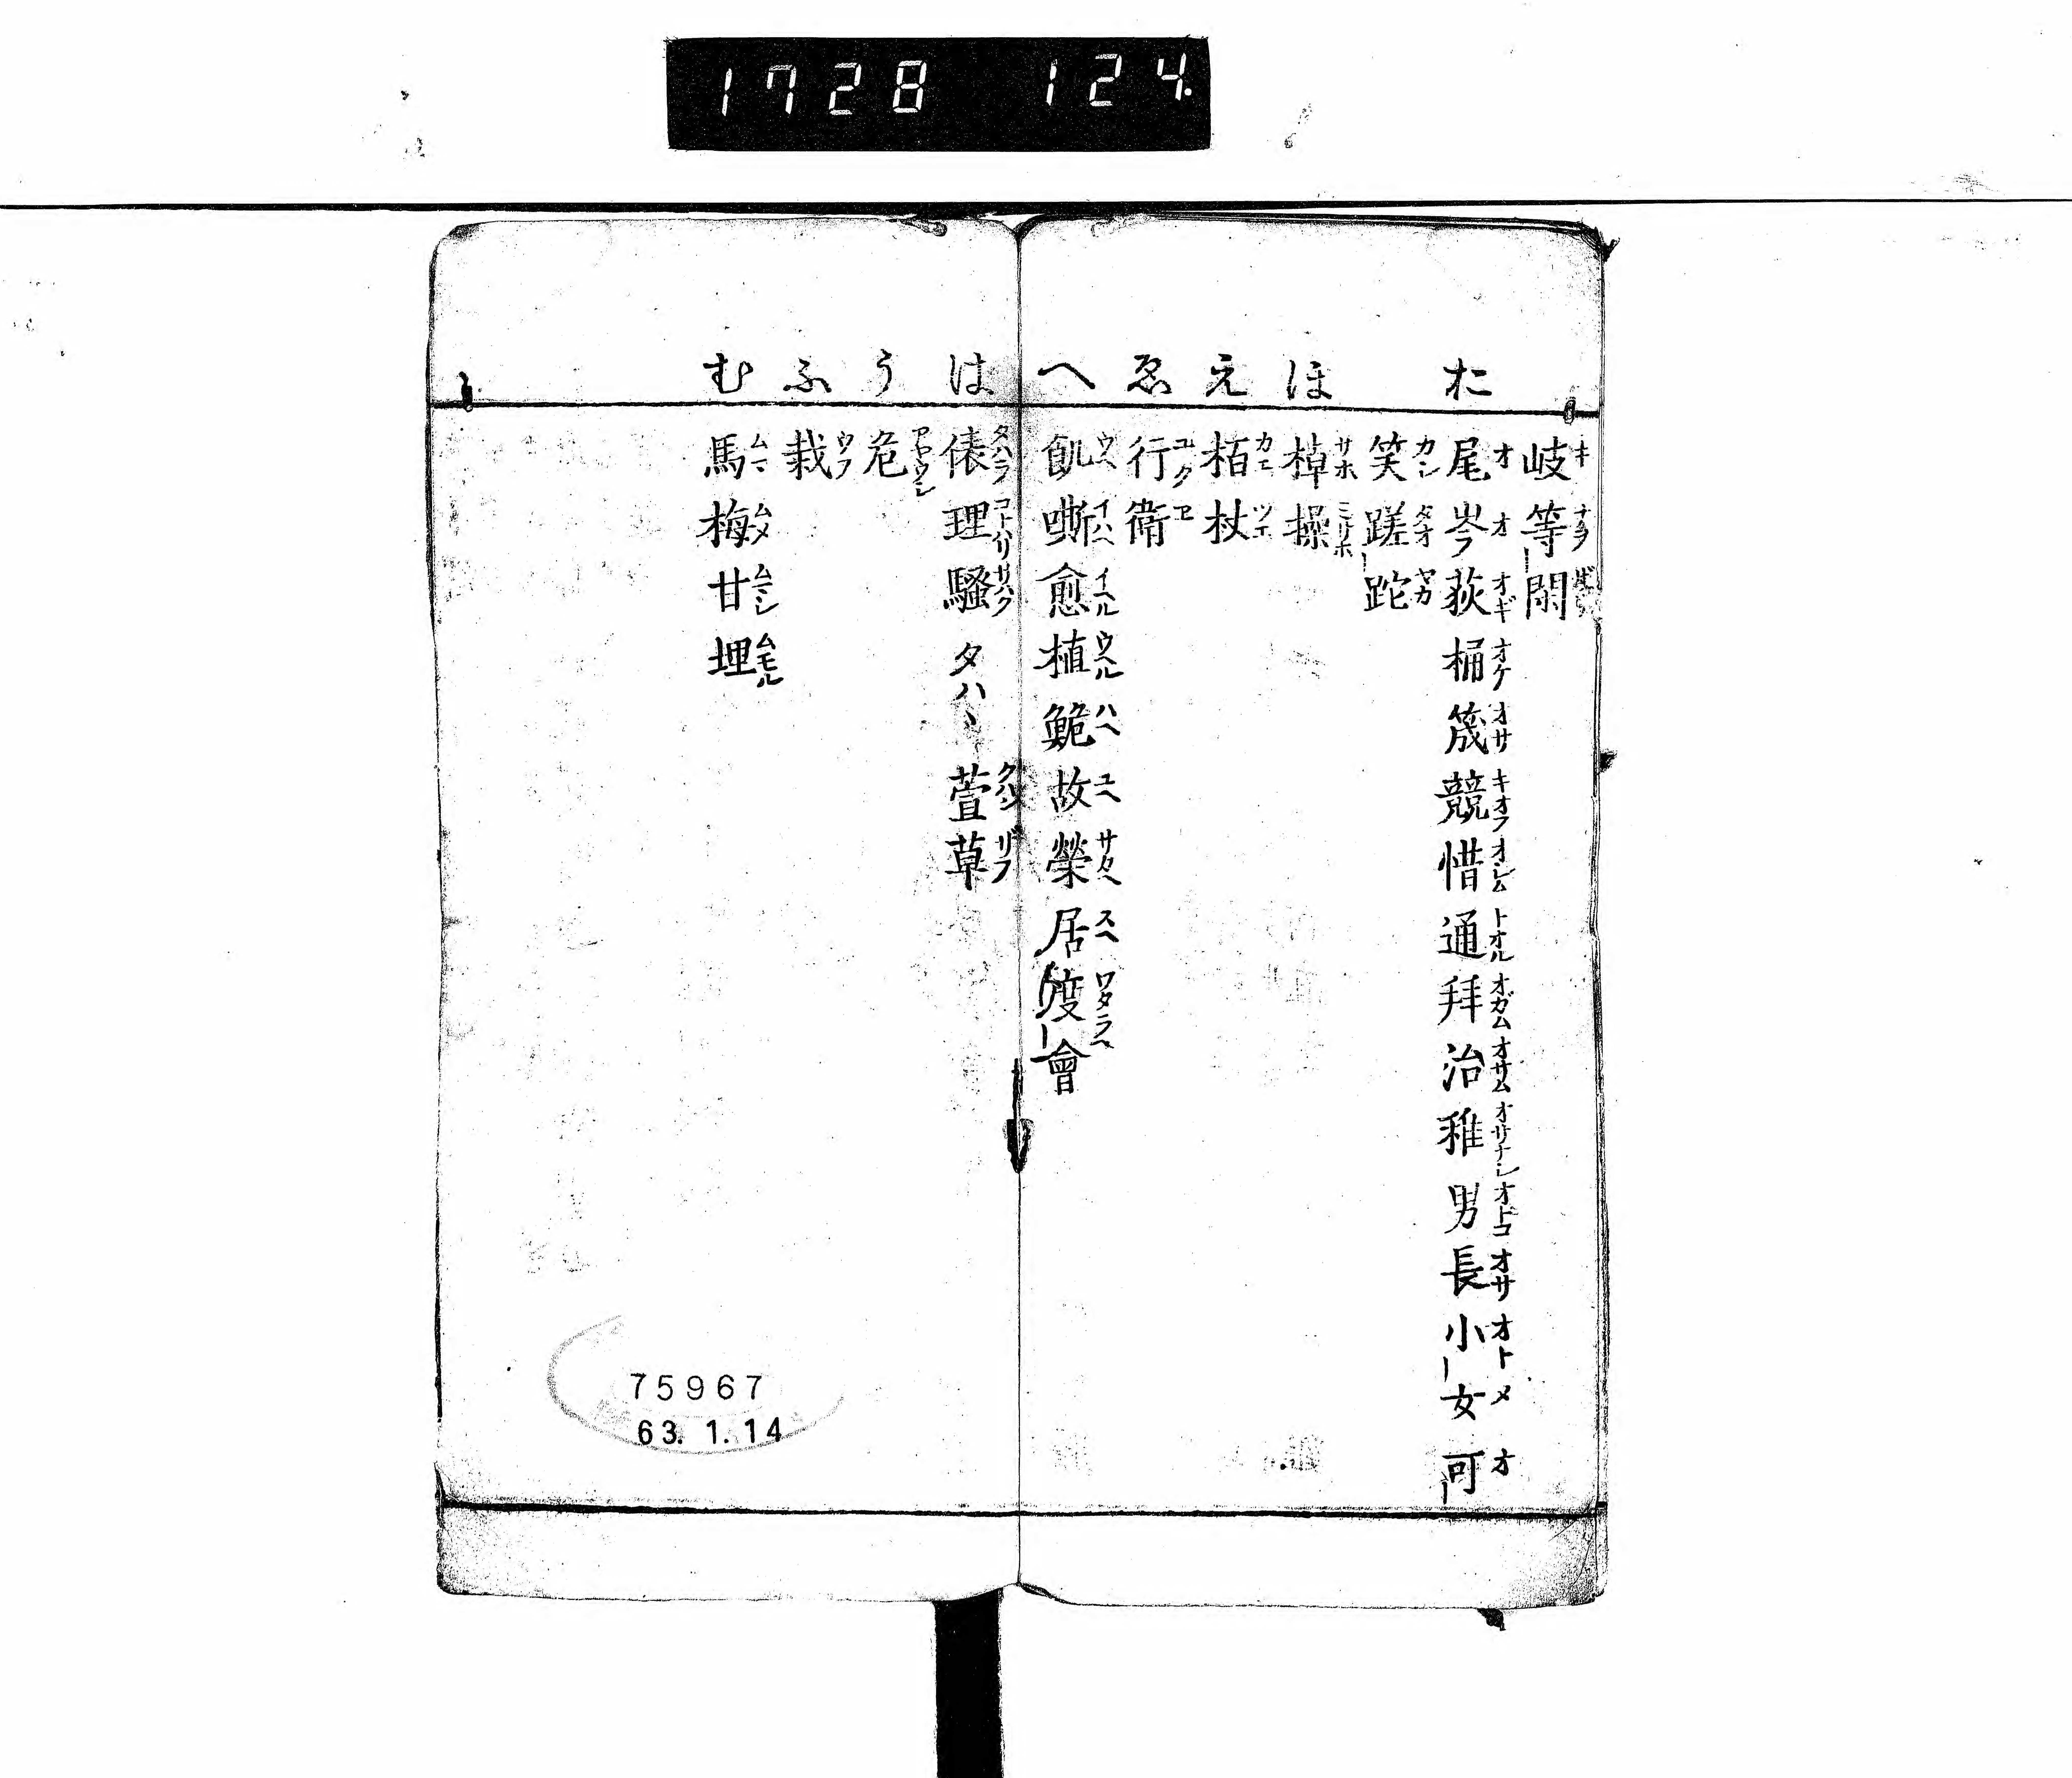 1728 124.
お ほ え ゑ へ は う ふ む
岐キ 等ナヲ 閑
尾オ 岑オ 荻オギ 桶オケ 筬オサ 競キオフ 惜オシム 通トオル 拜オガム 治オサム 稚オサナシ 男オトコ 長オサ 小オト 女メ 可オ
笑カシ 蹉 跎
棹サホ 操ミサホ
栢カエ 杖ツエ
行ユク 衛ヱ
飢ウヘ 嘶イハヘ 愈イヘル 植ウヘル 鮠ハヘ 故ユヘ 榮サカヘ 居スヘ 度ワタラヘ 會
俵タハラ 理コトハリ 騒サハク タハヽ 萱 草
危アヤウシ
栽ウフ
馬ムマ 梅ムメ 甘ムマシ 埋ムモル
75967
63. 1. 14